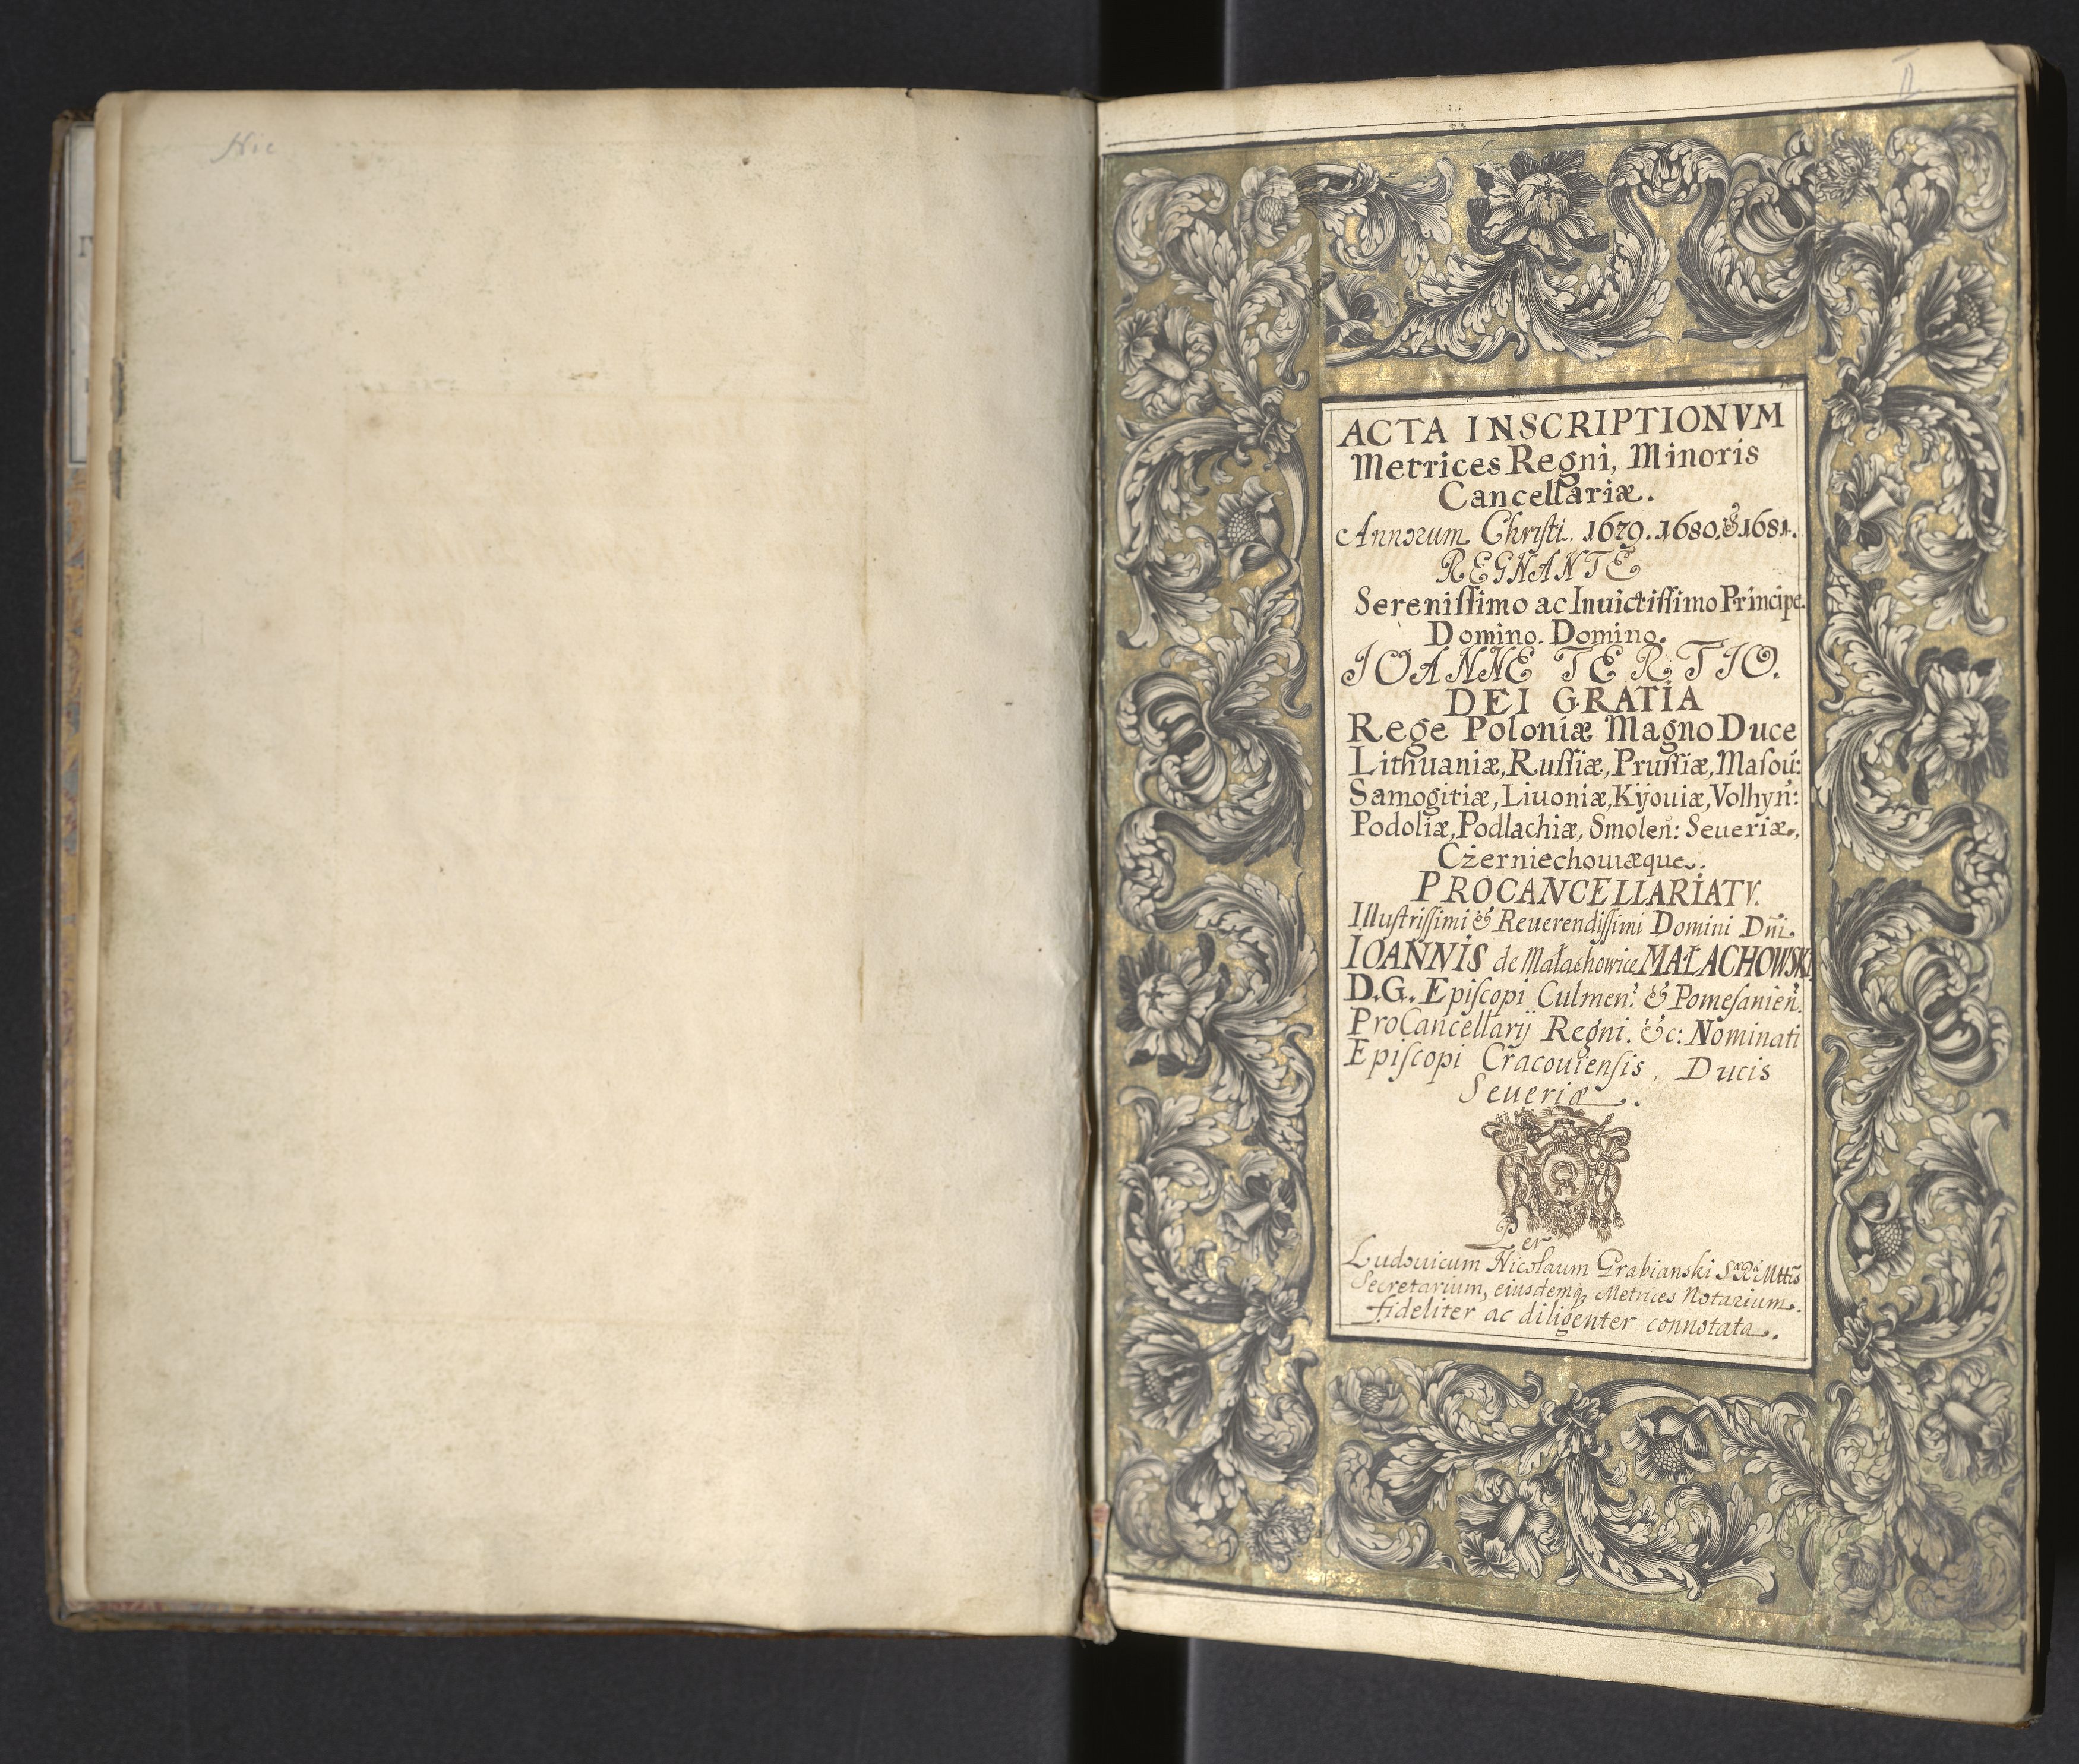 Nic
ACTA INSCRIPTIONVM
Metrices Regni, Minoris
Cancellariæ.
Annorum Chriſti. 1679. 1680. & 1681.
REGNANTE
Sereniſſimo ac Inuictiſſimo Principe.
Domino. Domino.
IOANNE TERTIO.
DEI GRATIA
Rege Poloniæ Magno Duce
Lithuaniæ, Ruſſiæ, Pruſſiæ, Maſou:
Samogitiæ, Liuoniæ, Kijouiæ, Volhyn̄:
Podoliæ, Podlachiæ, Smolen̄: Seueriæ,
Czerniechouiæque.
PROCANCELLARIATV.
Illuſtriſſimi & Reuerendiſſimi Domini Dn̄i
IOANNIS de Małachowice MAŁACHOWSKI
D.G. Epiſcopi Culmen: & Pomeſanien̄.
ProCancellarij Regni. &c: Nominati
Epiſcopi Cracouienſis, Ducis
Seueriæ.
Per
Ludouicum Nicolaum Grabianski S. R. Mttis
Secretarium, eiusdemq; Metrices Notarium.
fideliter ac diligenter connotata.